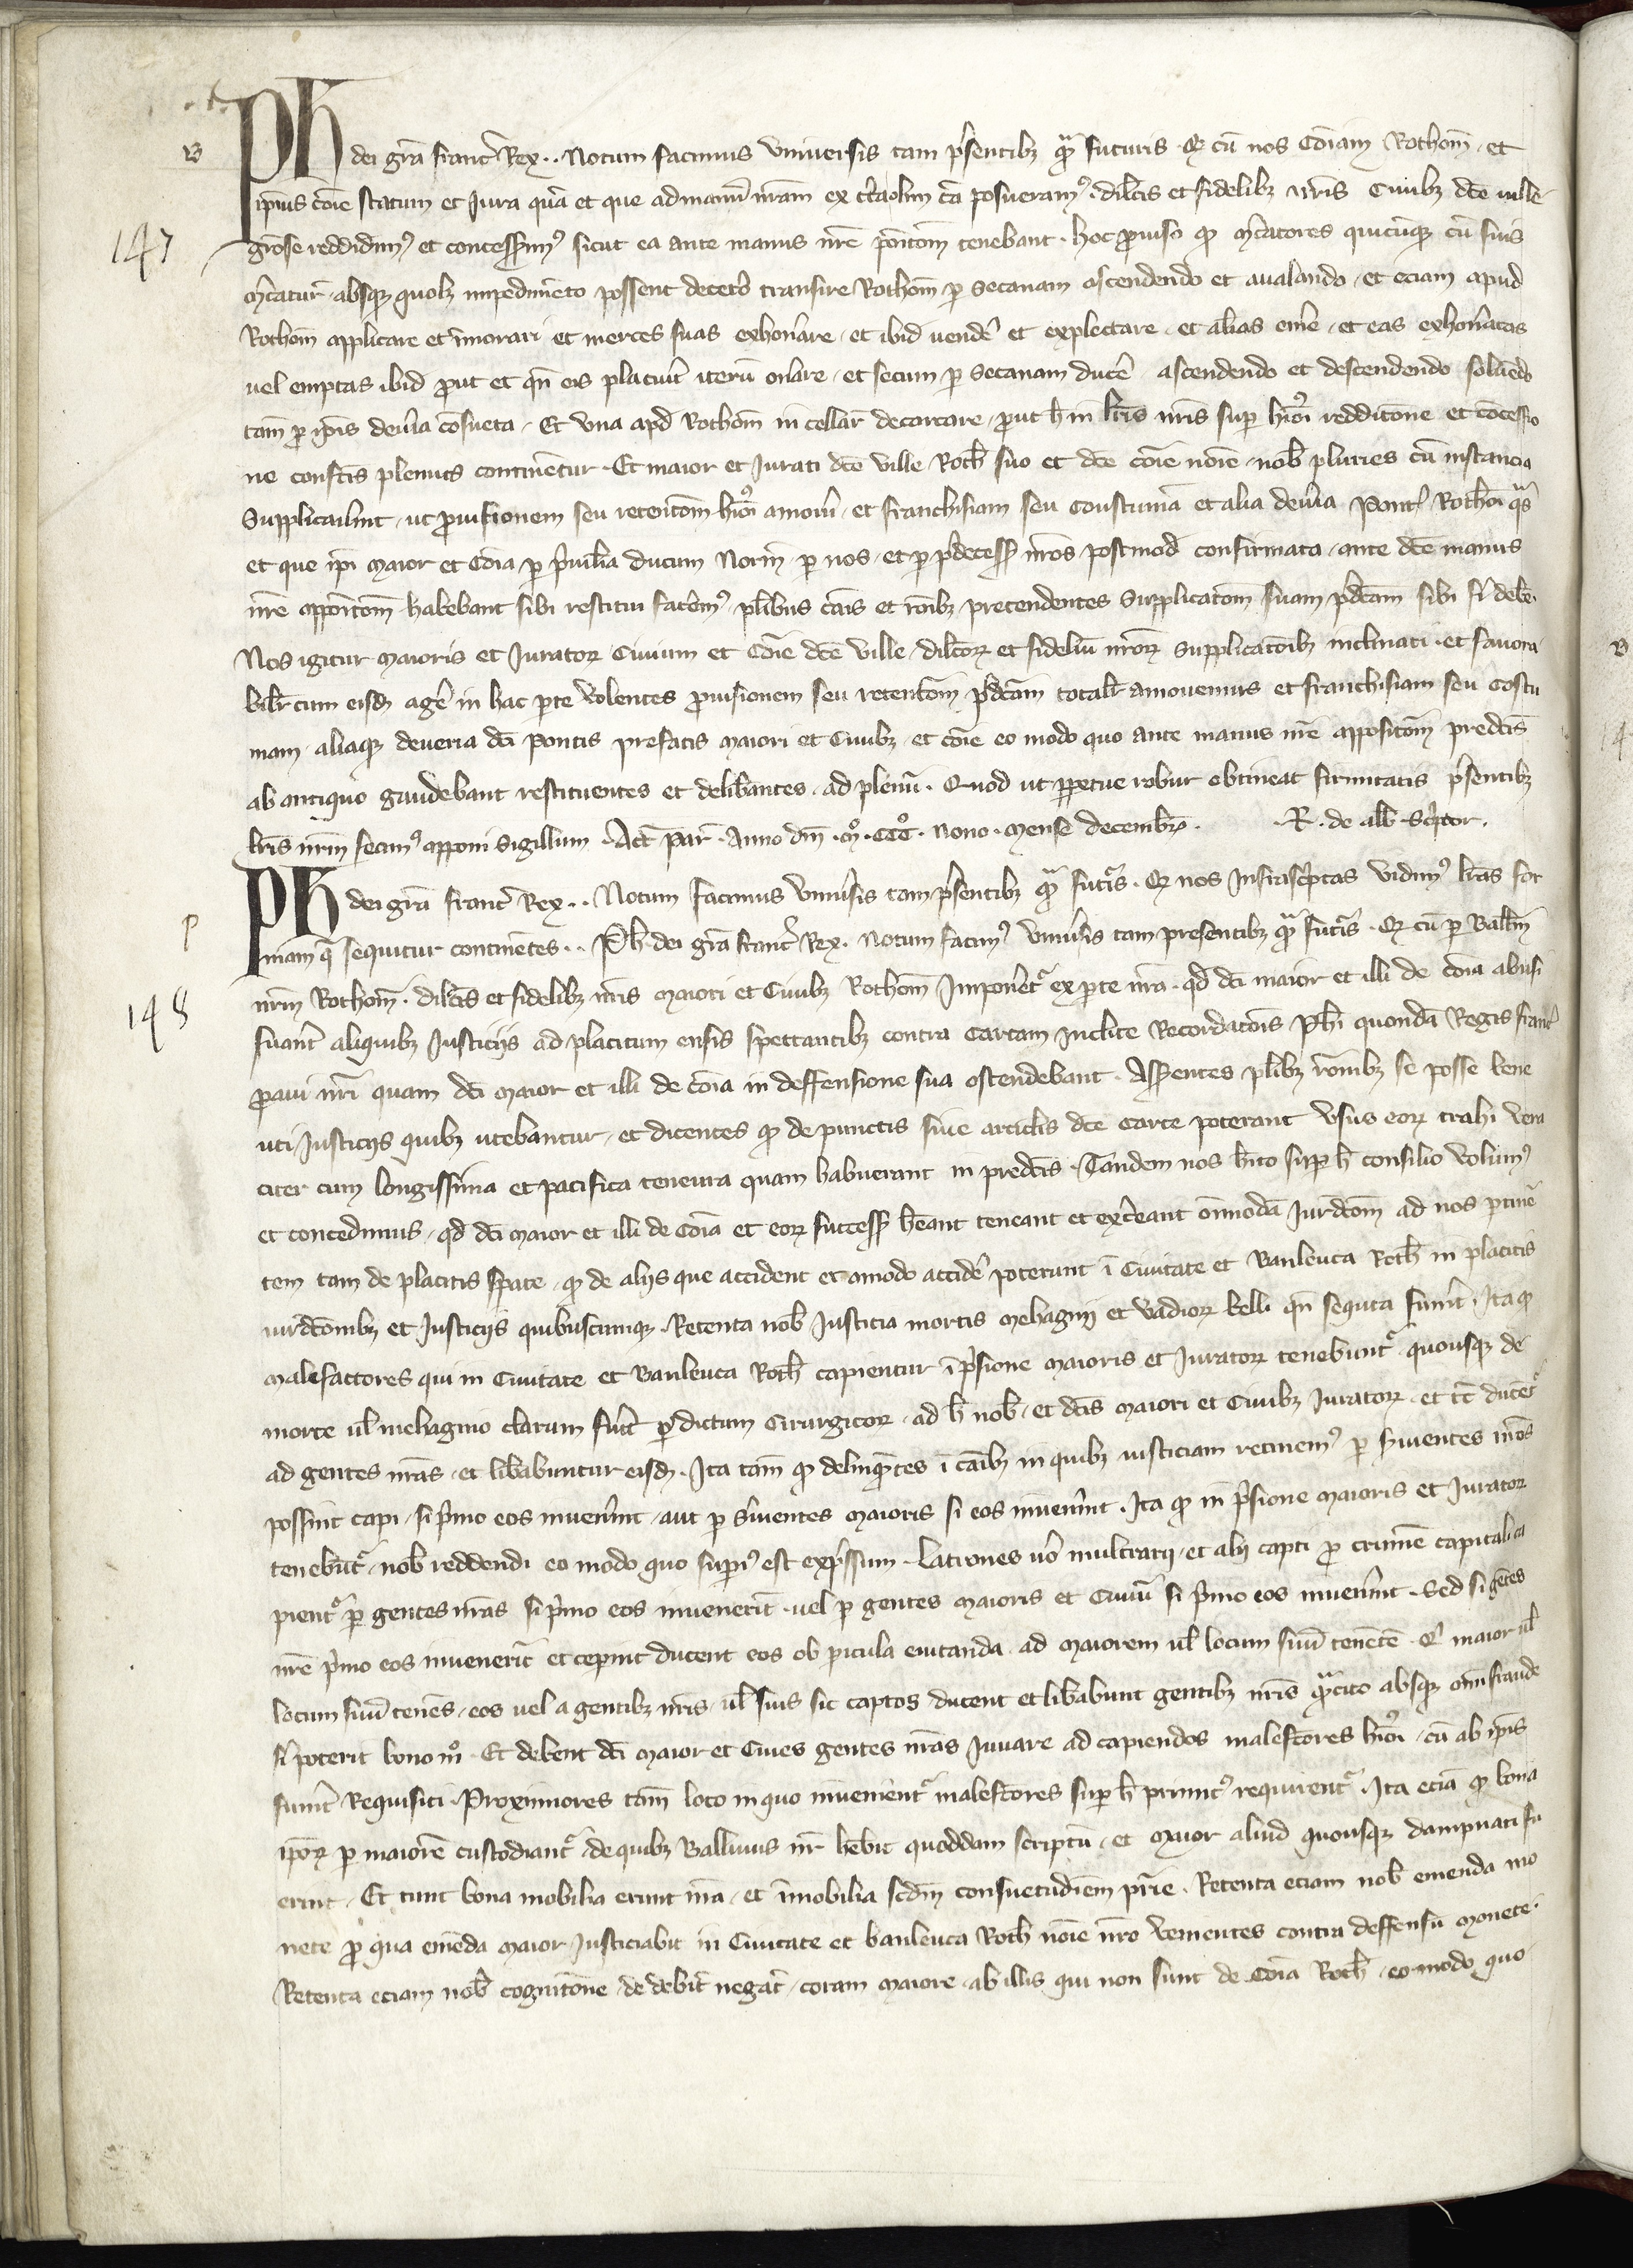 .b.
Ph dei gra franc Rex .. Notum facimus universis tam presentibz qm futuris . Qz cu nos coiam Rothom et
ipius coie statum et jura qua et que ad manu nram ex cta olim ca posueram9 . dilcis et fidelibz nris Civibz dce ville
147
giose reddidim9 et concessim9 sicut ea ante manus nre pōitom tenebant . hoc proviso qz mcatores quicuqz cu suis
mcatur absqz quolz impedimeto possent decet transire Rothom p secanam ascendendo et avalando et eciam apud
Rothom applicare et imorari et merces suas exhonare et ibid vende et explectare et alias eme et eas exhonatas
vel emptas ibid prout et qn eis placuit iteru onare et secum p secanam duce ascendendo et descendendo solvedo
tam pro ipis devia consueta . Et vina apd Rothom in cellar decarcare prout h in lris nris sup hioi redditione et cocessio
ne confcis plenius continetur . Et maior et Jurati dce ville Roth suo et dce coie noie nob pluries cu instancia
Supplicavint ut provisionem seu retentom hioi amovi et franchisiam seu Coustuma et alia devia Pont Rothom qas
et que ipi maior et coia p privilia ducum Norm p nos et p predecess nros postmod confirmata ante dce manus
nre appoitom habebant sibi restitui facem9 plibus cais et roibz pretendentes supplicatom suam pdcam sibi fi debe
Nos igitur maioris et Juratorz Civium et Coie dce ville dilcorz et fideliu nrorz supplicatoibz inclinati et favora
bilr cum eisdz age in hac pte volentes provisionem seu retentom pdcam totalr amovemus et franchisiam seu costu
mam aliaqz deveria dci pontis prefatis maiori et Civibz et coie eo modo quo ante manus nre appositom predcis
ab antiquo gaudebant restituentes et delibantes ad plenu . Quod ut ppetue robur obtineat firmitatis psentibz
lris nrm fecim9 apponi sigillum . Act Par Anno dm m° ccc° nono mense decembr . R . de alb . Sciptor .
Ph dei gra franc Rex .. Notum facimus univsis tam psentibz qm futis . Qz nos infrasciptas vidim9 lras for
P
mam q sequitur continetes .. Ph . dei gra franc Rex . Notum facim9 univsis tam presentibz qm futis . Qz cu p Ballm
148
nrm Rothom . dilcis et fidelibz nris maiori et Civibz Rothom Imponet ex pte nra qd dci maior et illi de coia abusi
fuant aliquibz Justiciis ad placitum ensis spectantibz contra cartam inclite Recordatois Phi quonda Regis franc
proavi nri quam dci maior et illi de coia in deffensione sua ostendebant . Asserentes plibz roibz se posse bene
uti Justiciis quibz utebantur et dicentes qz de punctis sive articlis dce carte poterant usus eorz trahi vera
citer cum longissima et pacifica teneura quam habuerant in predcis . Tandem nos hito sup h consilio volum9
et concedimus qd dci maior et illi de coia et eorz success heant teneant et exceant omimoda Jurdcom ad nos ptine
tem tam de placitis spate qz de aliis que accident et amodo accide poterunt i Civitate et Banleuca Roth in placitis
iurdcoibz et Justiciis quibuscumqz . Retenta nob Justicia mortis mehagnij et vadiorz belli qn sequta fuint . Ita qz
malefactores qui in Civitate et Banleuca Roth capientur i prisione maioris et Juratorz tenebunt quousqz de
morte ul mehagnio clarum fuit p dictum Cirurgicorz ad h nob et dcis maiori et Civibz Juratorz et tc ducet
ad gentes nras et libabuntur eisdz . Ita tam qz delinqntes i caibz in quibz iusticiam retinem9 p svientes nros
possint capi si pmo eos invenint aut p svientes maioris si eos invenint . Ita qz in prisione maioris et Juratorz
tenebut nob reddendi eo modo quo supi9 est expssum . Latrones vo multrarij et alij capti pro crimie capitali ca
pient p gentes nras si pmo eos invenerit vel p gentes maioris et Civiu si pmo eos invenint . Sed si gentes
nre pmo eos invenerit et cepint ducent eos ob picula evitanda ad maiorem ul locum suu tenete . Qi maior ul
locum suu tenes eos vel a gentibz nris ul suis sic captos ducent et libabunt gentibz nris qmcito absqz omi fraude
fi poterit bono mo . Et debent dci maior et Cives gentes nras Juvare ad capiendos malefcores hioi cu ab ipis
fuint Requisiti . Proximiores tam loco in quo invenient malefcores sup h primit9 requirent . Ita ecia qz bona
ipoz p maiore custodiant de quibz Ballivus nr hebit quoddam scriptu et maior aliud quousqz dampnati fu
erint . Et tunc bona mobilia erunt nra et imobilia scdm consuetudiem prie . Retenta eciam nob emenda mo
nete pro qua emeda maior Justiciabit in Civitate et banleuca Roth noie nro venientes contra deffensu monete .
Retenta eciam nob cognitone de debit negat coram maiore ab illis qui non sunt de coia Roth eo modo quo